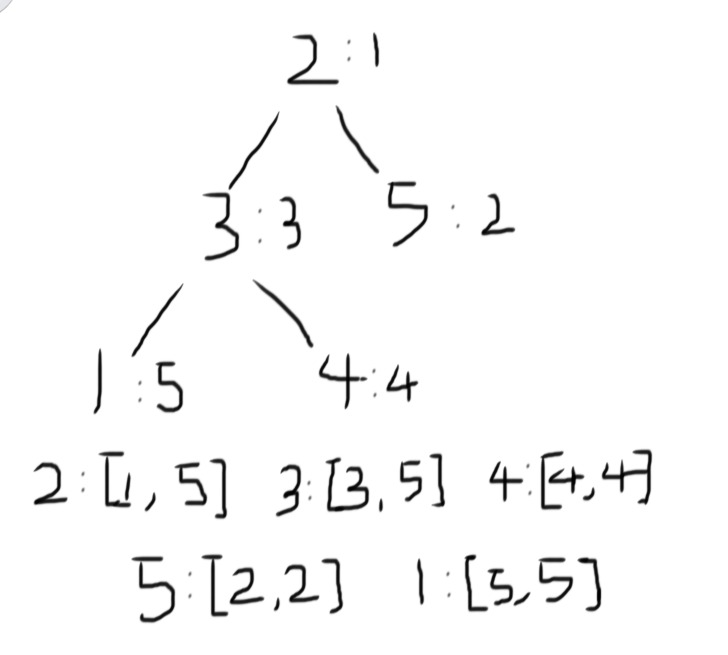 2:1
3:3 5:2
1:5 4:4
2:[1,5] 3:[3,5] 4:[4,4]
5:[2,2] 1:[5,5]